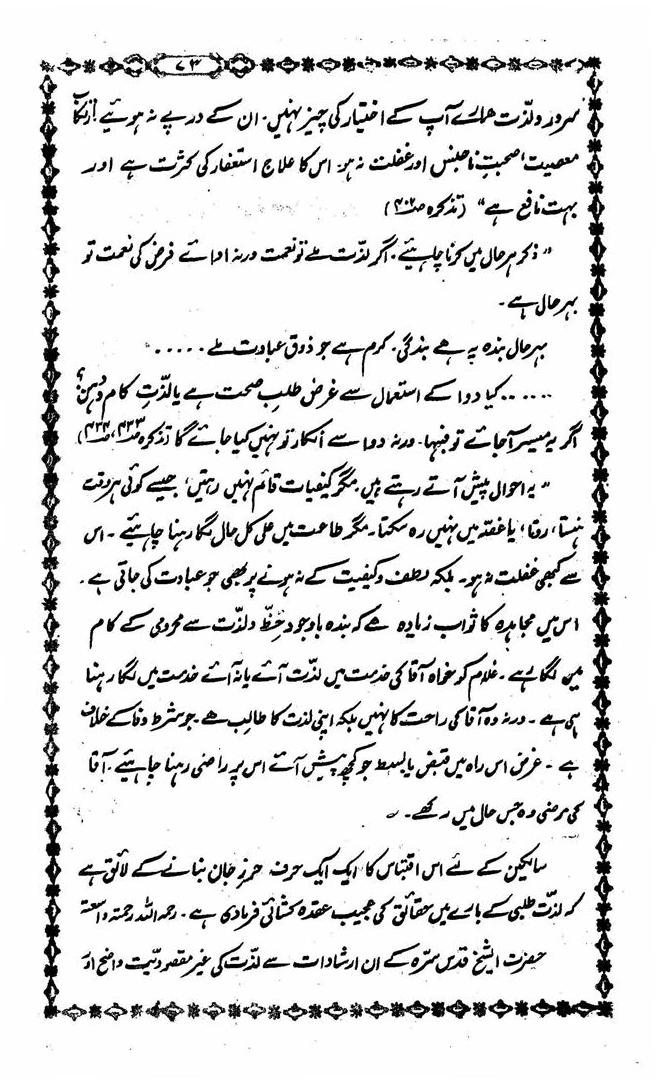 ۷۳
سرور و لذت ہمارے آپ کے اختیار کی چیز نہیں۔ ان کے درپے نہ ہوئیے! ارتکاب
معصیت، صحبتِ ناجنس اور غفلت نہ ہو۔ اس کا علاج استغفار کی کثرت ہے اور
بہت نافع ہے" (تذکرہ صـ۴۰۲)
" ذکر ہر حال میں کرنا چاہیئے۔ اگر لذت ملے تو نعمت ورنہ ادائے فرض کی نعمت تو
بہر حال ہے۔
بہر حال بندہ پہ ہے بندگی۔ کرم ہے جو ذوق عبادت ملے .....
..... کیا دوا کے استعمال سے غرض طلبِ صحت ہے یا لذتِ کام و دہن؟
اگر یہ میسر آجائے تو فبہا۔ ورنہ دوا سے انکار تو نہیں کیا جائے گا (تذکرہ صـ۴۲۳، صـ۴۲۴)
" یہ احوال پیش آتے رہتے ہیں۔ مگر کیفیات قائم نہیں رہتیں، جیسے کوئی ہر وقت
ہنستا، روتا، یا غصہ میں نہیں رہ سکتا۔ مگر طاعت میں علی کل حال لگا رہنا چاہئیے۔ اس
سے کبھی غفلت نہ ہو۔ بلکہ لطف و کیفیت کے نہ ہونے پر بھی جو عبادت کی جاتی ہے۔
اس میں مجاہدہ کا ثواب زیادہ ہے کہ بندہ باوجود حظّ و لذت سے محرومی کے کام
میں لگا ہے۔ غلام کو خواہ آقا کی خدمت میں لذت آئے یا نہ آئے خدمت میں لگا رہنا
ہی ہے۔ ورنہ وہ آقا کی راحت کا نہیں بلکہ اپنی لذت کا طالب ہے۔ جو شرط وفا کے خلاف
ہے۔ غرض اس راہ میں قبض یا بسط جو کچھ پیش آئے اس پر راضی رہنا چاہئیے۔ آقا
کی مرضی وہ جس حال میں رکھے۔
سالکین کے لئے اس اقتباس کا ایک ایک حرف حرزِ جان بنانے کے لائق ہے
کہ لذت طلبی کے بارے میں حقائق کی عجیب عقدہ کشائی فرمادی ہے۔ رحمہ اللہ رحمۃ واسعۃ
حضرت الشیخ قدس سرہ کے ان ارشادات سے لذت کی غیر مقصودیت واضح اور